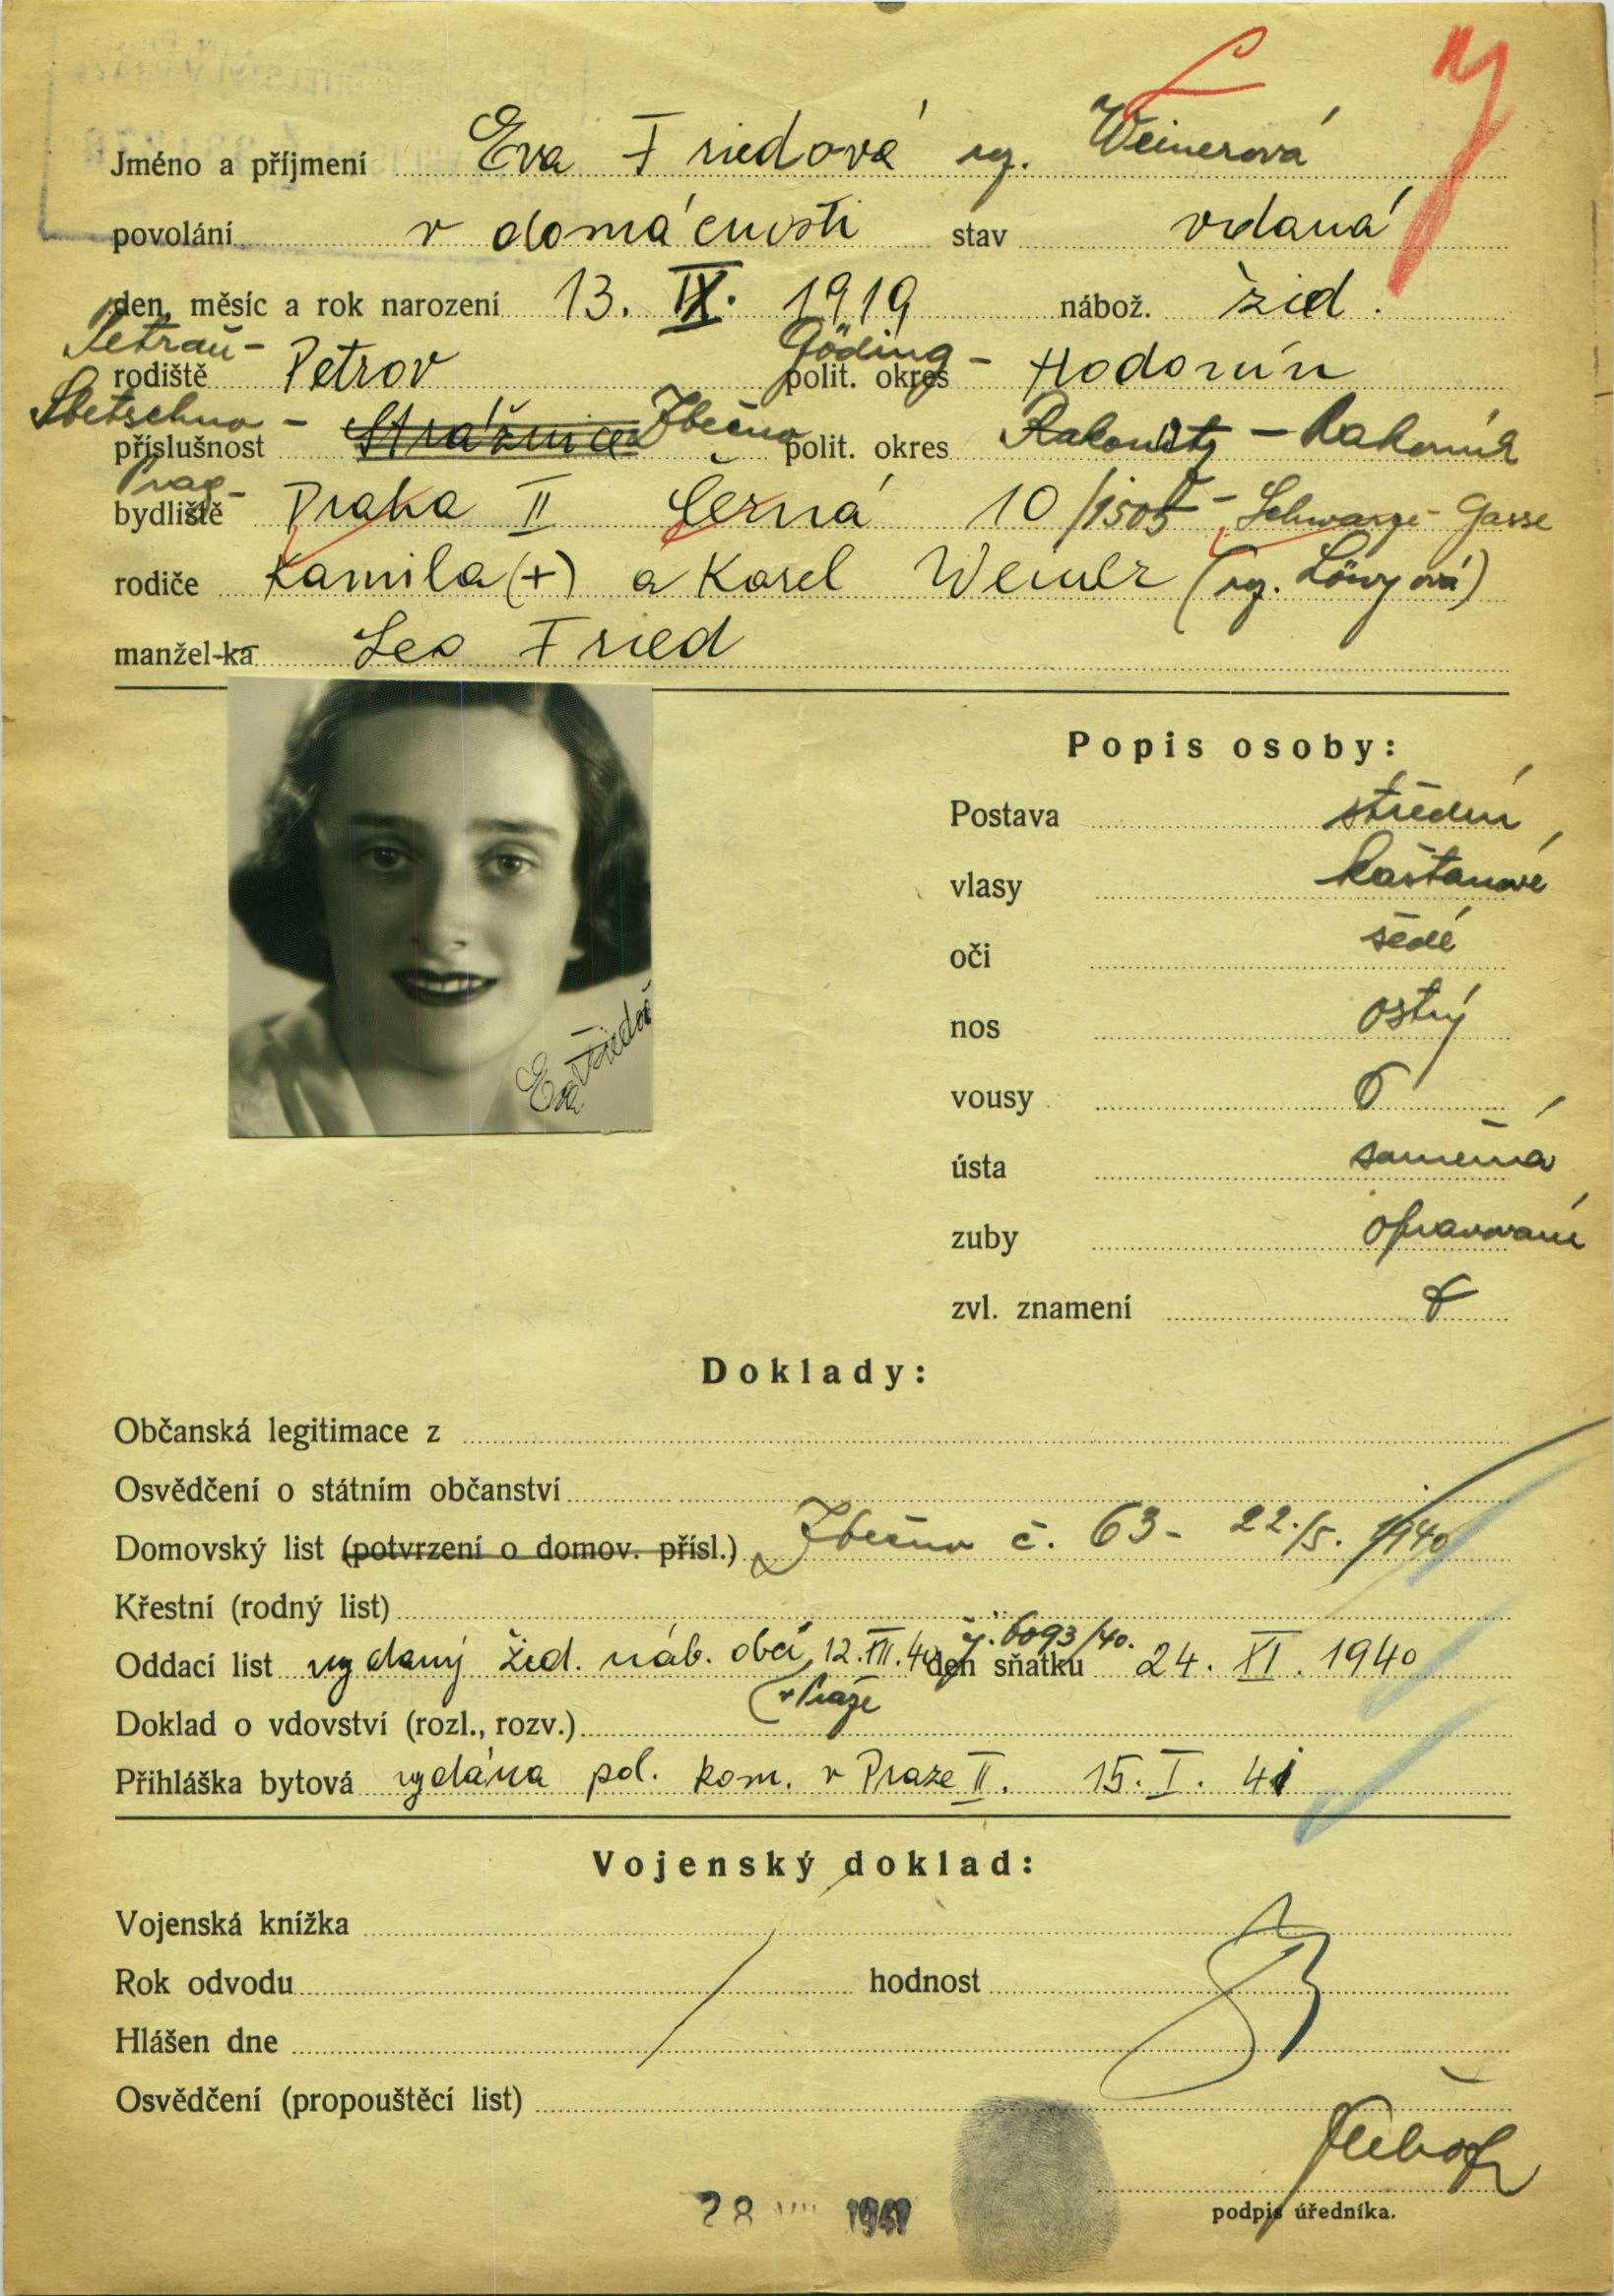 Jméno a příjmení Eva Friedová roz. Weinerová
povolání v domácnosti stav vdaná
den, měsíc a rok narození 13. IX. 1919 nábož. žid.
Petrau - Göding -
rodiště Petrov polit. okres Hodonín
Sbetschno -
příslušnost Strážnice Zbečno polit. okres Rakonitz - Rakovník
Prag -
bydliště Praha II Černá 10/1505 - Schwarze Gasse
rodiče Kamila (+) a Karel Weiner (roz. Löwyová)
manžel-ka Leo Fried
Eva Friedová
Popis osoby:
Postava střední
vlasy kaštanové
oči šedé
nos ostrý
vousy
ústa souměrná
zuby opravované
zvl. znamení
Doklady:
Občanská legitimace z
Osvědčení o státním občanství
Domovský list (potvrzení o domov. přísl.) Zbečno č. 63 - 22./5. 1940
Křestní (rodný list)
čj. 6093/40.
Oddací list vydaný žid. náb. obcí 12. XII. 40 den sňatku 24. XI. 1940
v Praze
Doklad o vdovství (rozl., rozv.)
Přihláška bytová vydána pol. kom. v Praze II. 15. I. 41
Vojenský doklad:
Vojenská knížka
Rok odvodu hodnost
Hlášen dne
Osvědčení (propouštěcí list)
28 VII 1941
podpis úředníka.